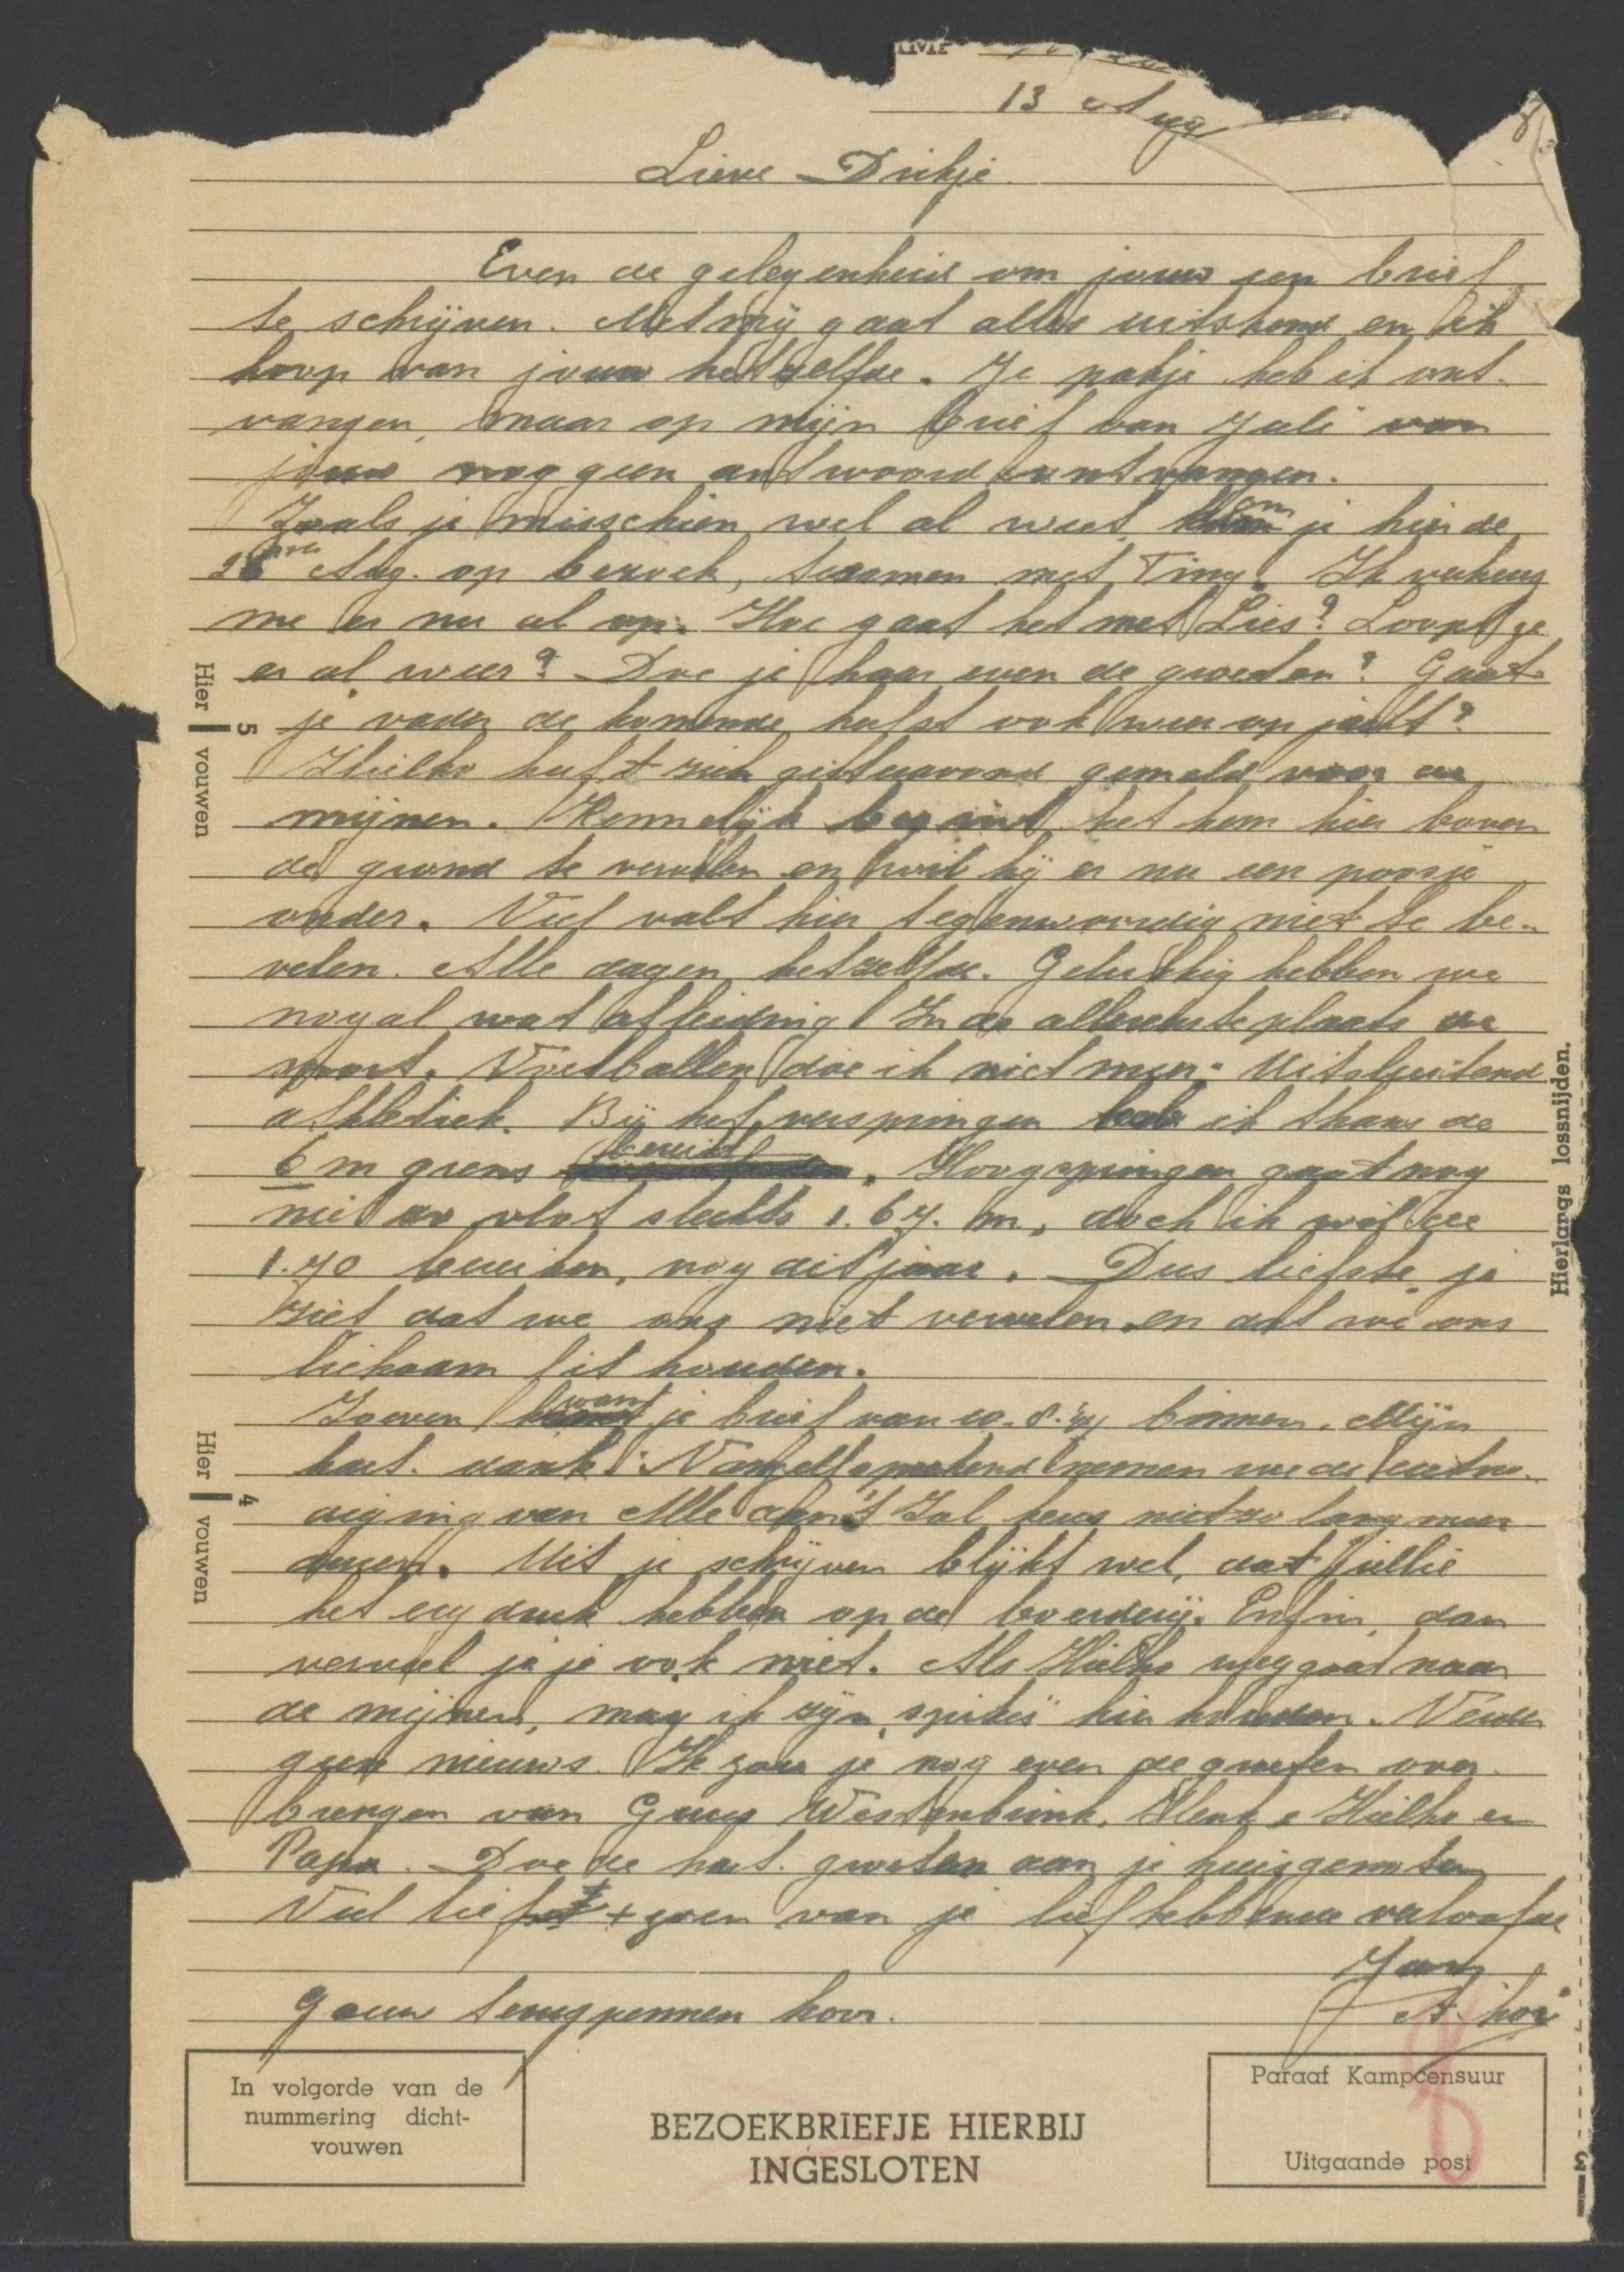 13 Aug
Lieve Dikje.
Even de gelegenheid om jouw een brief
te schrijven. Met mij gaat alles uitstekend en ik
hoop van jouw hetzelfde. Je pakje heb ik ont-
vangen, maar op mijn brief van Juli van
jouw nog geen antwoord ontvangen.
Zoals je misschien wel al weet kom je hier de
26ste Aug. op bezoek, samen met Tiny. Ik verheug
me er nu al op. Hoe gaat het met Lies? Loopt ze
er al weer? Doe je haar even de groeten? Gaat
je vader de komende herfst ook weer op jacht?
Hielke heeft zich gisteravond gemeld voor de
mijnen. Kennelijk begint het hem hier boven
de grond te vervelen en wil hij er nu een poosje
onder. Veel valt hier tegenwoordig niet te be-
velen. Alle dagen hetzelfde. Gelukkig hebben we
nogal wat afleiding! In de allereerste plaats de
sport. Voetballen doe ik niet meer. Uitsluitend
athletiek. Bij het verspringen heb ik thans de
6 m grens bereikt. Hoogspringen gaat nog
niet zo vlot slechts 1.67. m, doch ik wil de
1.70 bereiken, nog dit jaar. Dus liefste je
ziet dat we ons niet vervelen en dat we ons
lichaam fit houden.
Zoeven kwam je brief van 10.8. binnen. Mijn
hart. dank! nemen we de
van Alle Zal heus niet zo lang meer
duren. Uit je schrijven blijkt wel, dat jullie
het erg druk hebben op de boerderij. Enfin, dan
verveel je je ook niet. Als Hielke weggaat naar
de mijnen, mag ik zijn hier houden. Verder
geen nieuws. Ik zou je nog even de groeten over
brengen van Guus Westenbrink, Henk, Hielke en
Papa. Doe de hart. groeten aan je huisgenoten
Veel liefs + zoen van je liefhebbende verloofde
Jan
Gauw terugpennen hoor.
Hier vouwen
5
Hier vouwen
4
Hierlangs lossnijden.
3
In volgorde van de
nummering dicht-
vouwen
BEZOEKBRIEFJE HIERBIJ
INGESLOTEN
Paraaf Kampcensuur
Uitgaande post